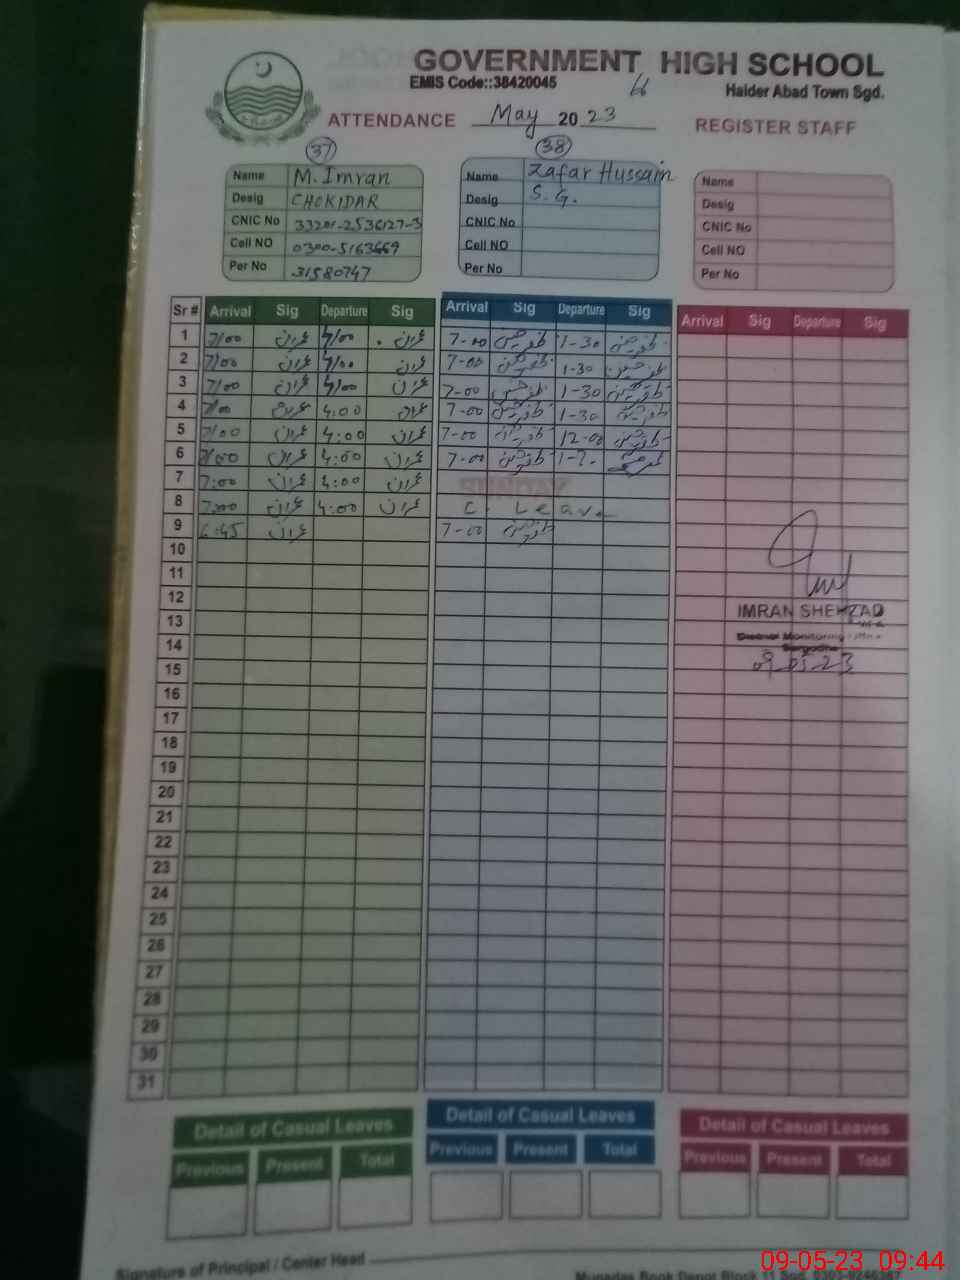 GOVERNMENT HIGH SCHOOL
EMIS Code::38420045
Haider Abad Town Sgd.
ATTENDANCE May 2023 REGISTER STAFF
37 38
Name M. Imran
Desig CHOKIDAR
CNIC No 33201-2536127-3
Cell NO 0300-5163669
Per No 31580747
Name Zafar Hussain
Desig S.G.
CNIC No
Cell NO
Per No
Name
Desig
CNIC No
Cell NO
Per No
Sr # Arrival Sig Departure Sig Arrival Sig Departure Sig Arrival Sig Departure Sig
1 7/00 عمران 4/00 عمران 7-00 1-30
2 7/00 عمران 4/00 عمران 7-00 1-30
3 7/00 عمران 4/00 عمران 7-00 1-30
4 7/00 عمران 4:00 عمران 7-00 1-30
5 7/00 عمران 4:00 عمران 7-00 12-00
6 7/00 عمران 4:00 عمران 7-00
7 7:00 عمران 4:00 عمران
8 7:00 عمران 4:00 عمران C. Leave
9 6:45 عمران 7-00
10
11
12
13
14
15
16
17
18
19
20
21
22
23
24
25
26
27
28
29
30
31
IMRAN SHEHZAD
District Monitoring
Sargodha
09.05.23
Detail of Casual Leaves Detail of Casual Leaves Detail of Casual Leaves
Previous Present Total Previous Present Total Previous Present Total
Signature of Principal / Center Head
Book Depot Block
09-05-23 09:44